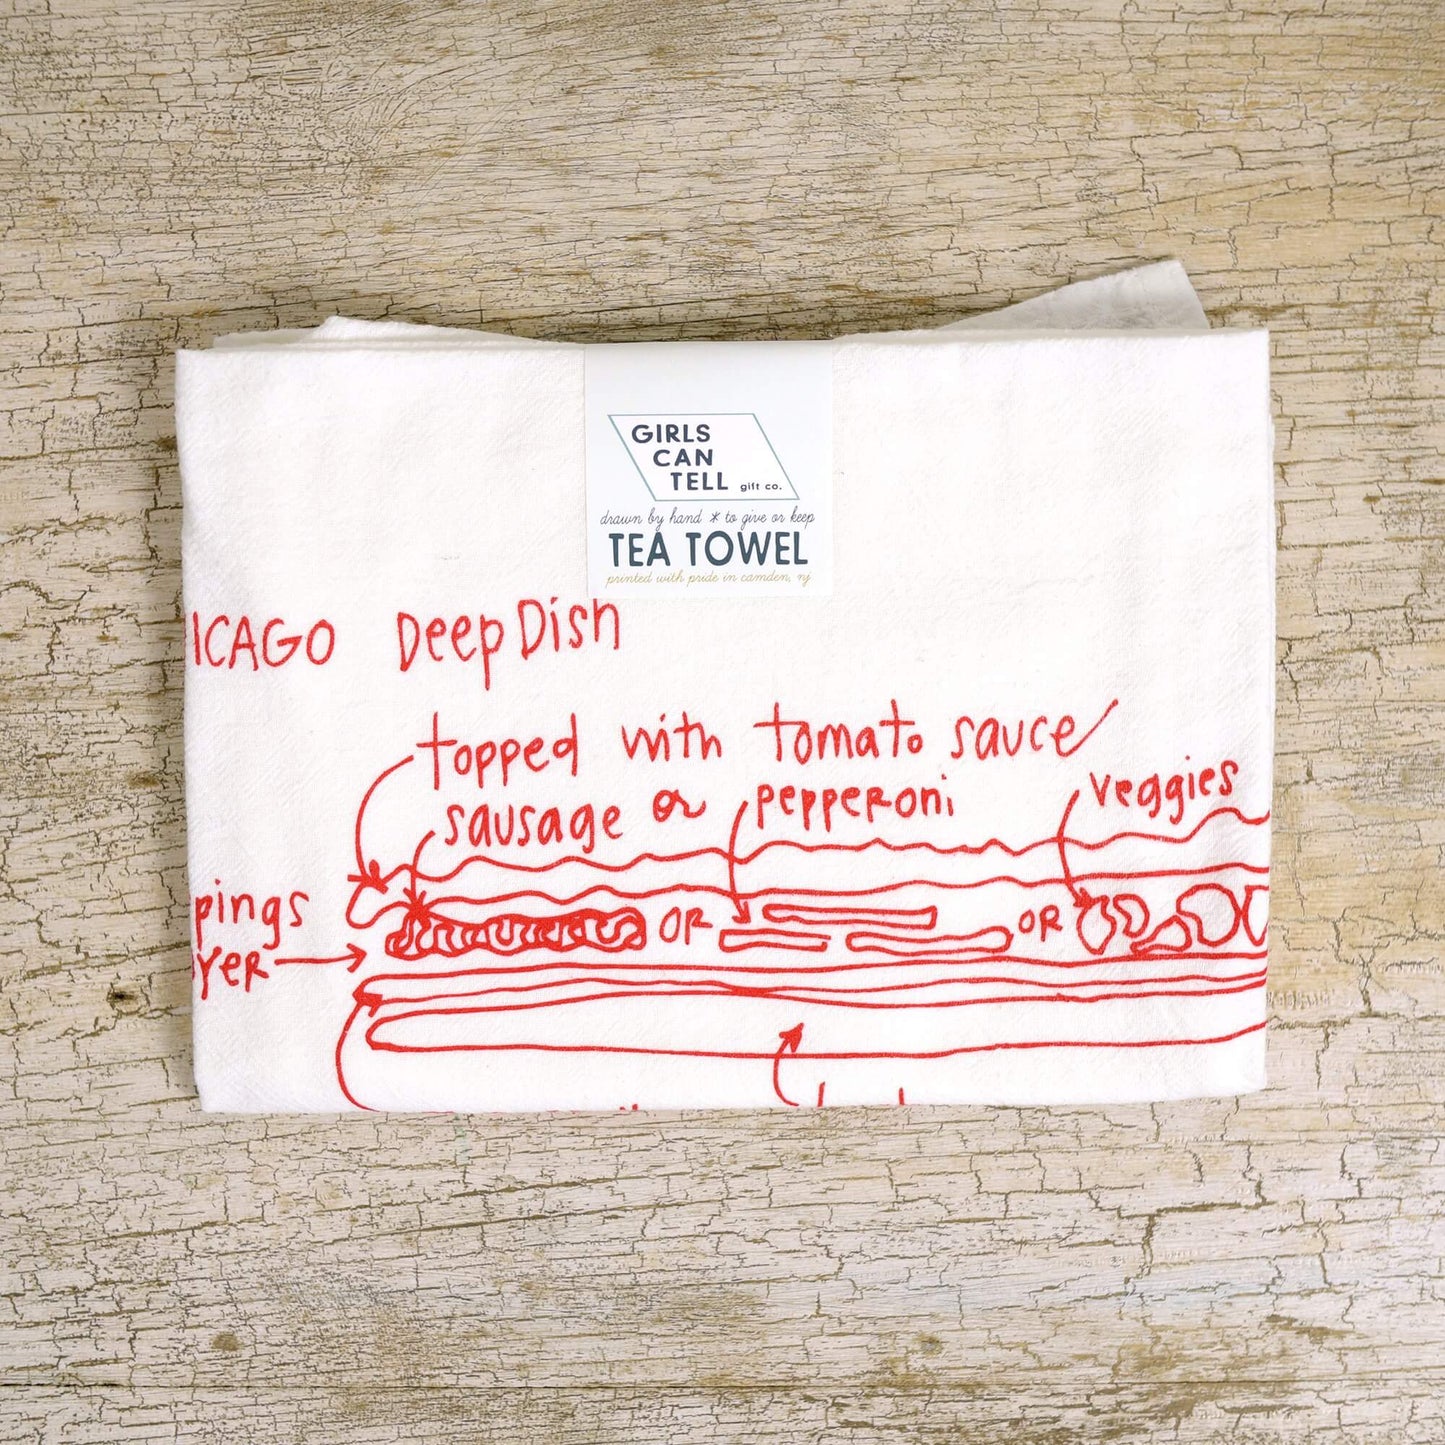 GIRLS
CAN
TELL gift co.
drawn by hand * to give or keep
TEA TOWEL
printed with pride in camden, nj
ICAGO DeepDish
topped with tomato sauce
sausage or pepperoni
veggies
pings
yer
OR
OR